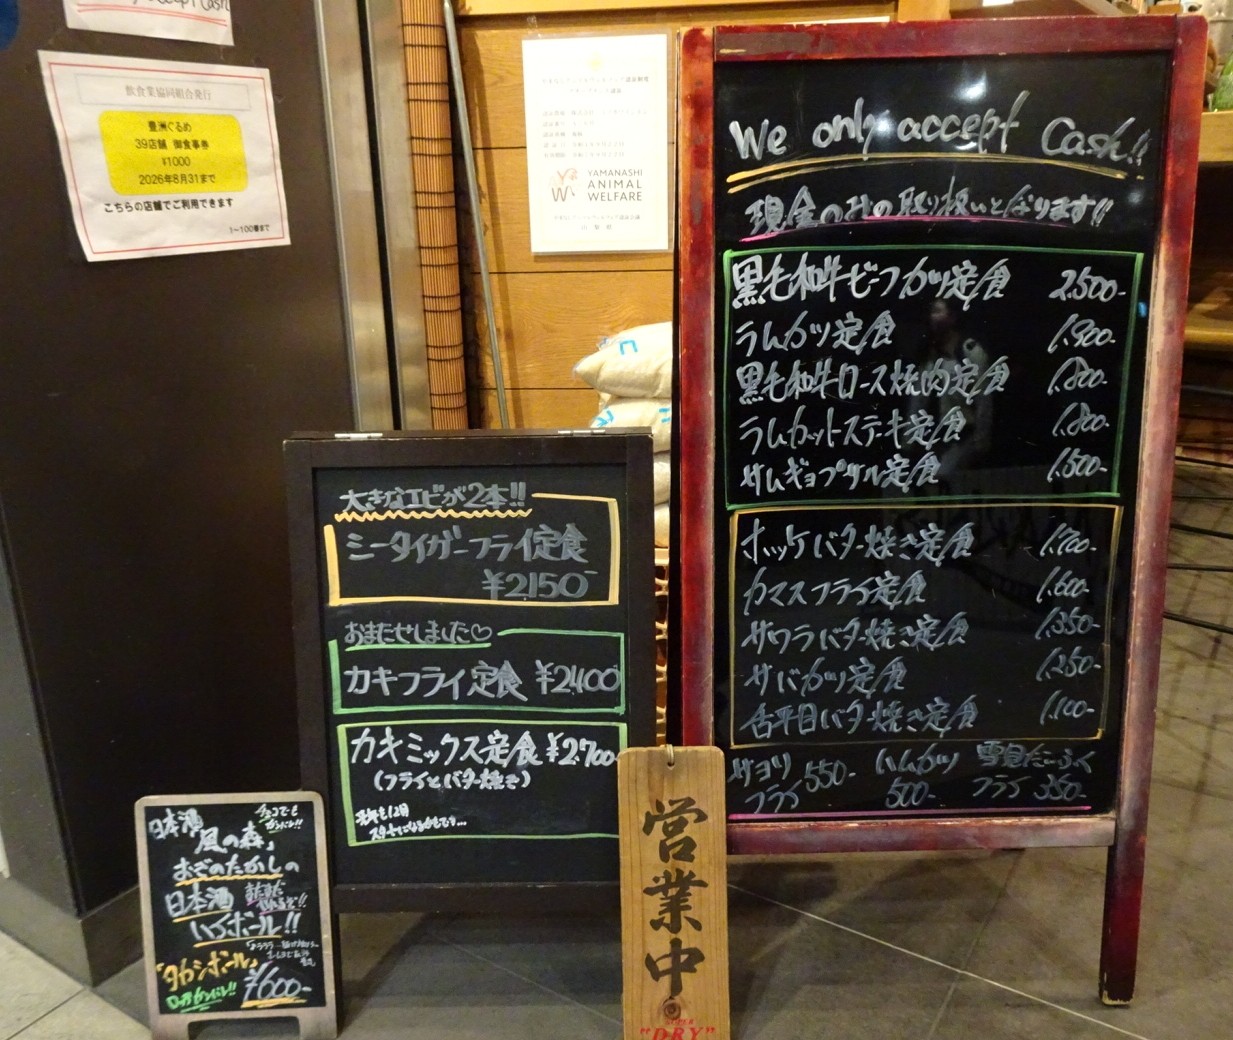 accept Cash
飲食業協同組合発行
豊洲ぐるめ
39店舗 御食事券
¥1000
2026年8月31まで
こちらの店舗でご利用できます
1〜100番まで
YAMANASHI
ANIMAL
WELFARE
We only accept Cash!!
現金のみの取り扱いとなります!!
黒毛和牛ビーフカツ定食 2,500-
らむかツ定食 1,900-
黒毛和牛ロース焼肉定食 1,800-
ラムカットステーキ定食 1,800-
サムギョプサル定食 1,500-
ホッケバター焼き定食 1,700-
カマスフライ定食 1,600-
サワラバター焼き定食 1,350-
サバカツ定食 1,250-
舌平目バター焼き定食 1,100-
サヨリフライ 550-
ハムカツ 500-
雪見だこふく
フライ 350-
大きなエビが2本!!
シータイガーフライ定食
¥2150-
おまたせしました♡
カキフライ定食 ¥2400
カキミックス定食 ¥2,700-
(フライとバター焼き)
日本酒
風の森」
おぎのたかしの
日本酒
ハイボール!!
「タカシボール」
¥600-
営業中
SUPER
"DRY"